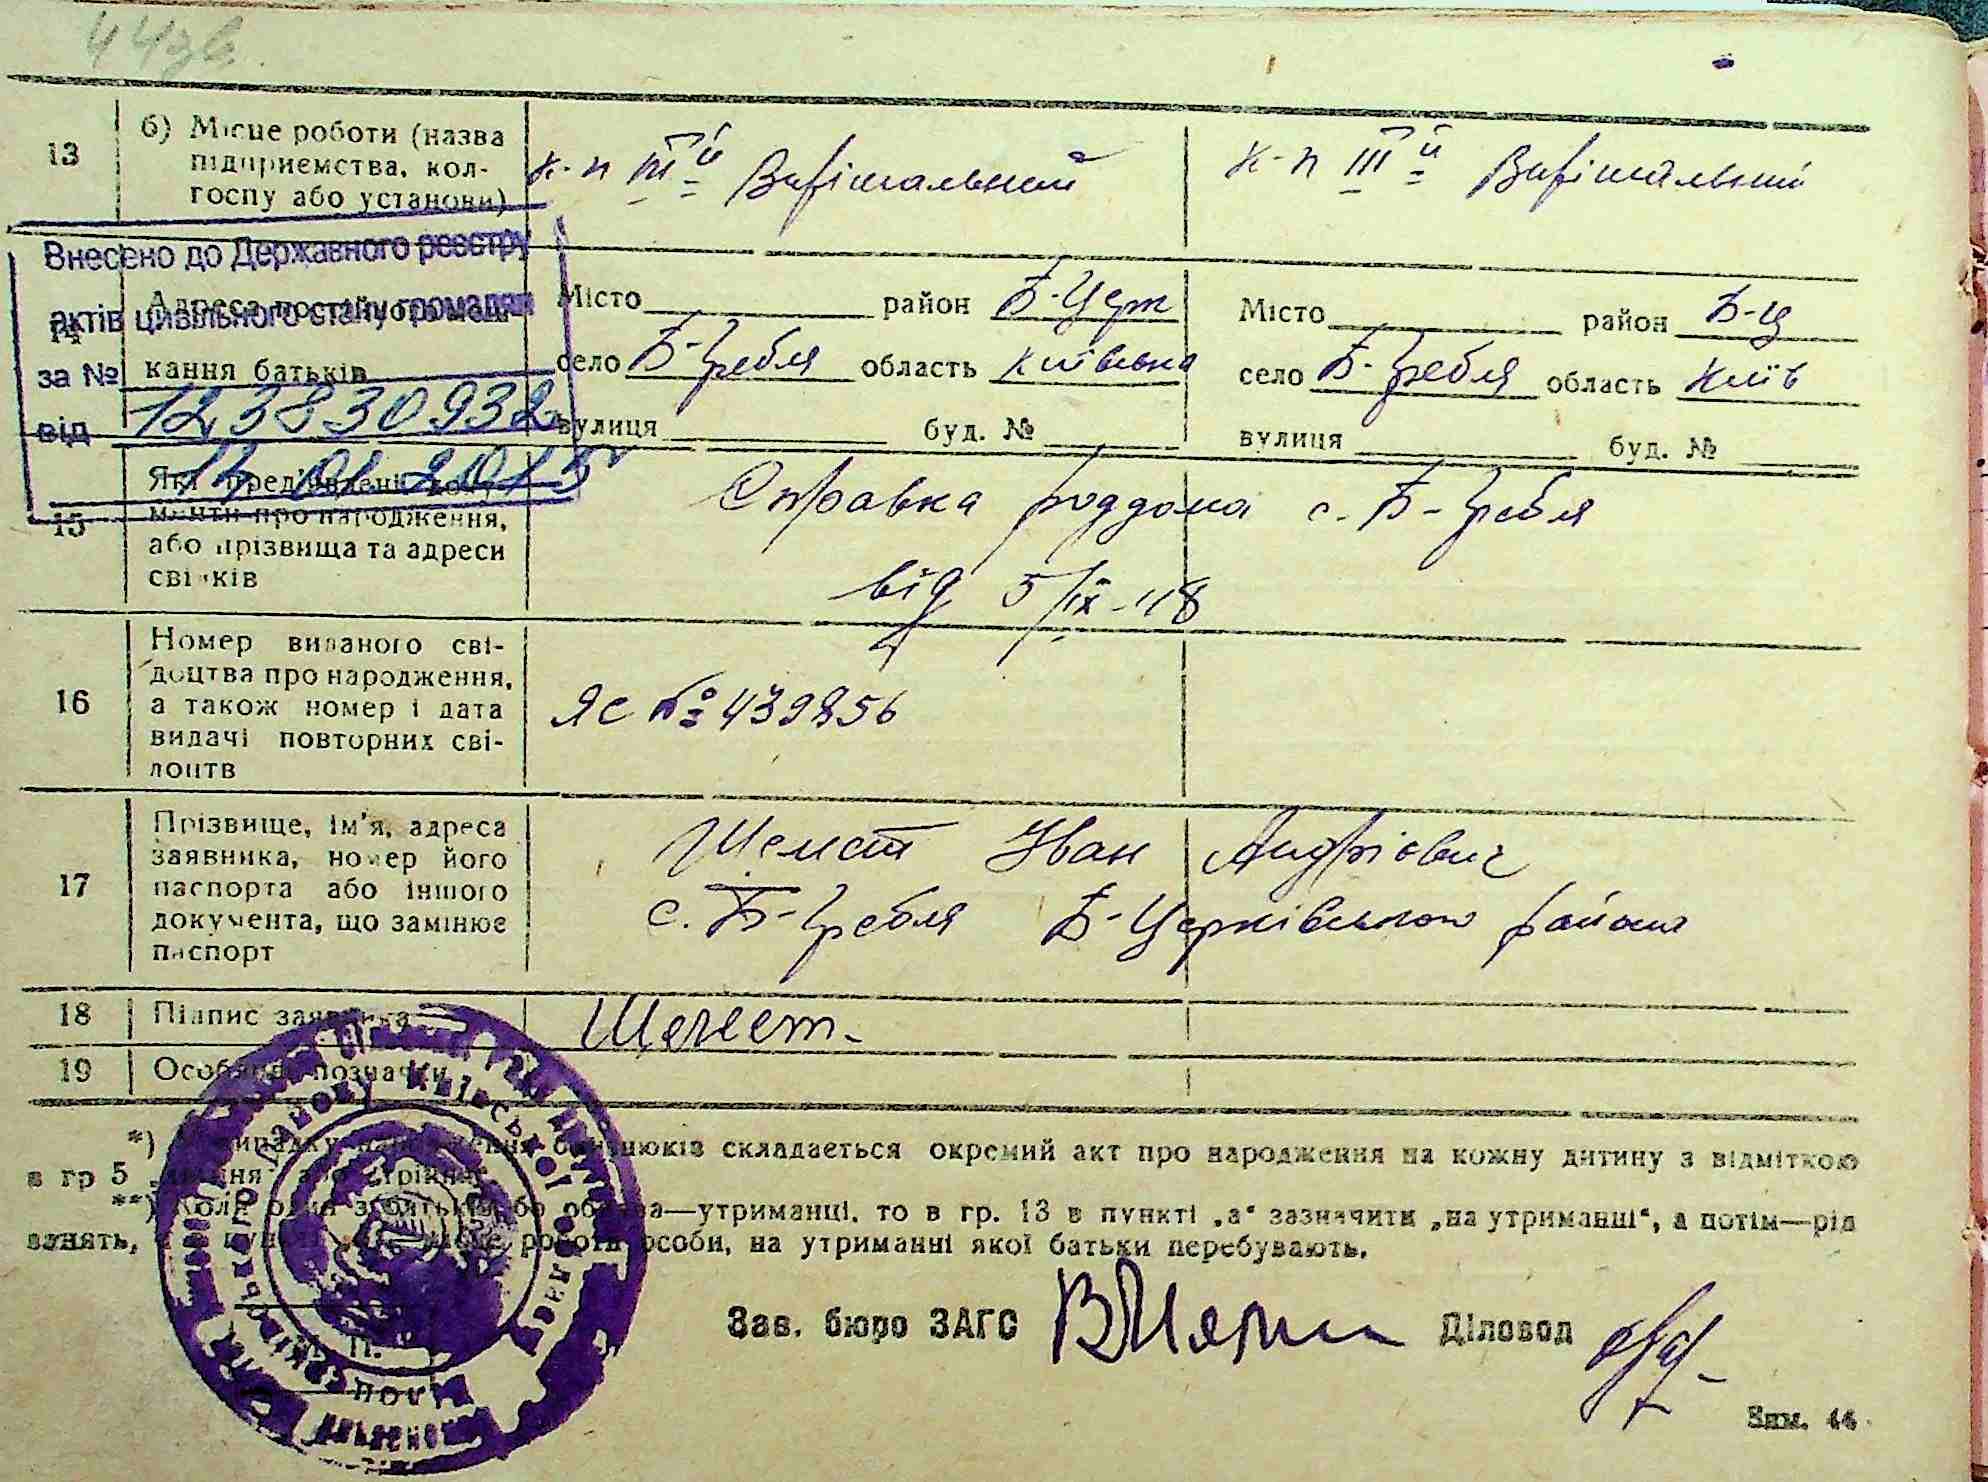 44зв.
13 б) Місце роботи (назва підприємства, колгоспу або установи)
к-п III й Вирішальний
к-п III й Вирішальний
Внесено до Державного реєстру
актів цивільного стану громадян
за № 123830932
від 14 01 2015
14 Адреса постійного мешкання батьків
Місто район Б-Церк
село Б-Гребля область Київська
вулиця буд. №
Місто район Б-Ц
село Б-Гребля область Київ
вулиця буд. №
15 Які пред'явлені документи про народження, або прізвища та адреси свідків
Справка роддома с. Б-Гребля
від 5/IX-48
16 Номер виданого свідоцтва про народження, а також номер і дата видачі повторних свідоцтв
ЯС № 439856
17 Прізвище, ім'я, адреса заявника, номер його паспорта або іншого документа, що замінює паспорт
Шемет Іван Андрієвич
с. Б-Гребля Б-Церківського района
18 Підпис заявника
Шемет.
19 Особливі позначки
*) У випадку народження близнюків складається окремий акт про народження на кожну дитину з відміткою
в гр 5 „двійня" або „трійня".
**) Коли один з батьків або обидва—утриманці, то в гр. 13 в пункті „а" зазначити „на утриманні", а потім—рід
занять, роботи особи, на утриманні якої батьки перебувають.
району Київської області
Зав. бюро ЗАГС
Діловод
Зам. 44